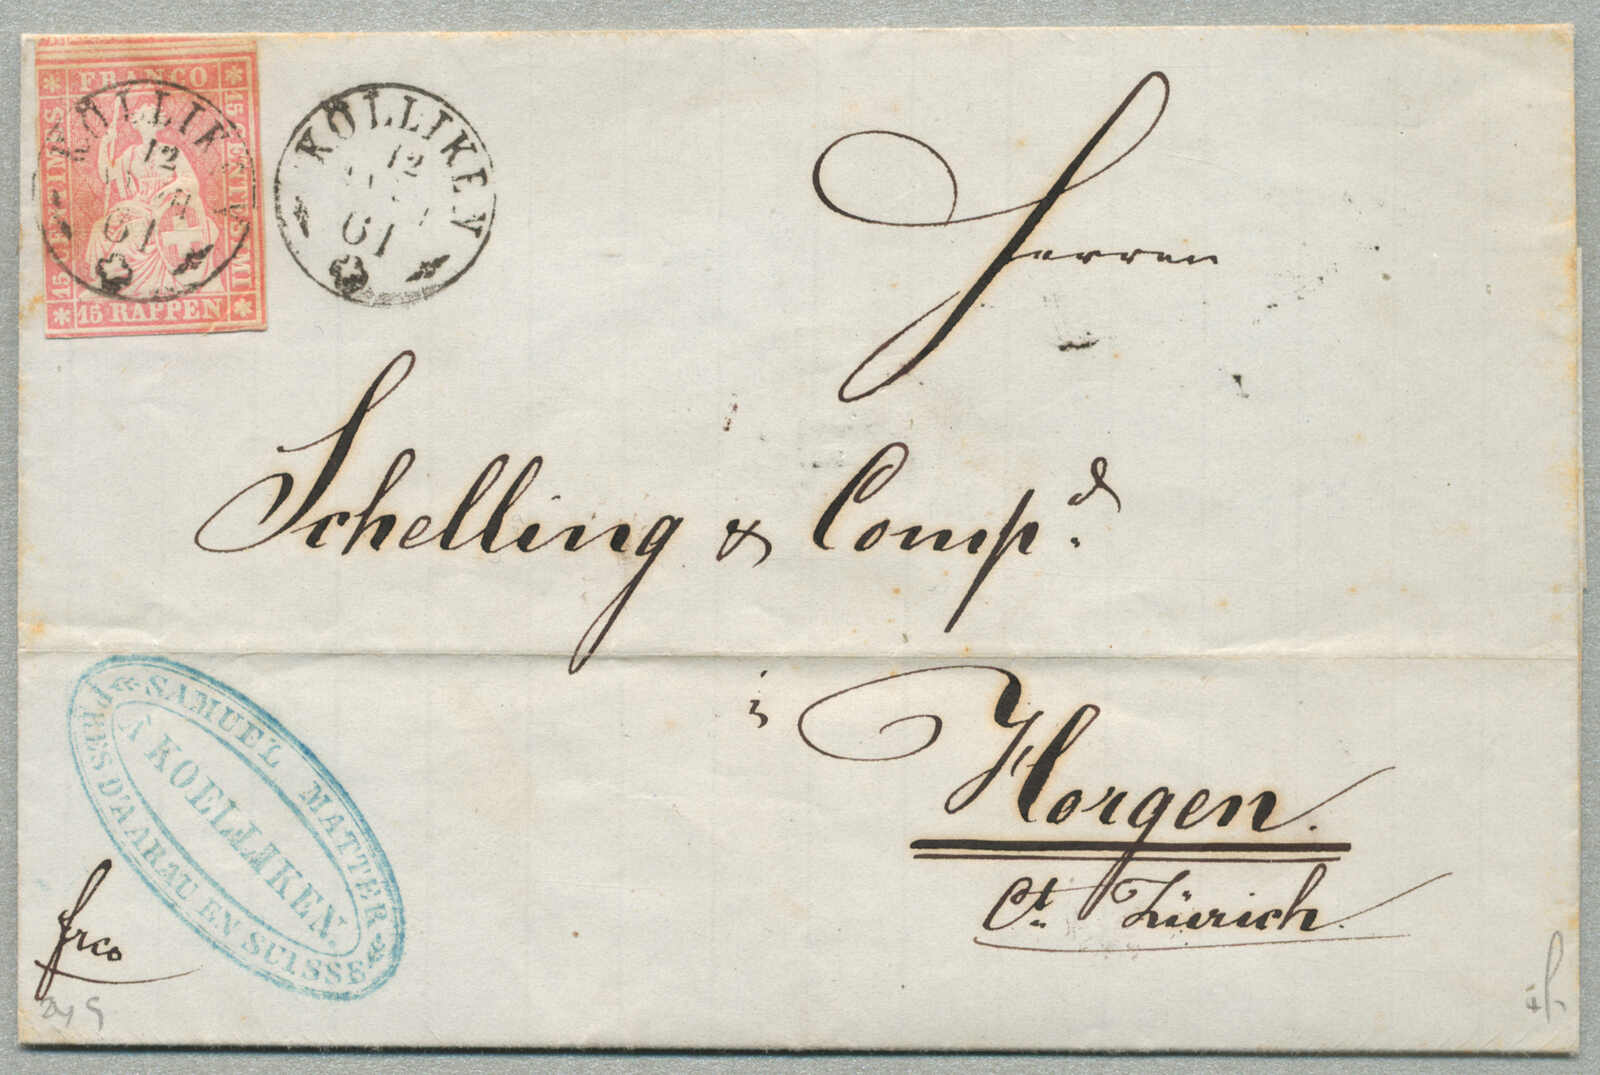 FRANCO
15 CENTIMES
15 CENTESIMI
15 RAPPEN
KÖLLIKEN
12
61
KÖLLIKEN
12
61
Herren
Schelling & Comp.
in
Horgen.
Ct. Zürich.
SAMUEL MATTER
À KOELLIKEN.
PRÈS D'AARAU EN SUISSE
frco